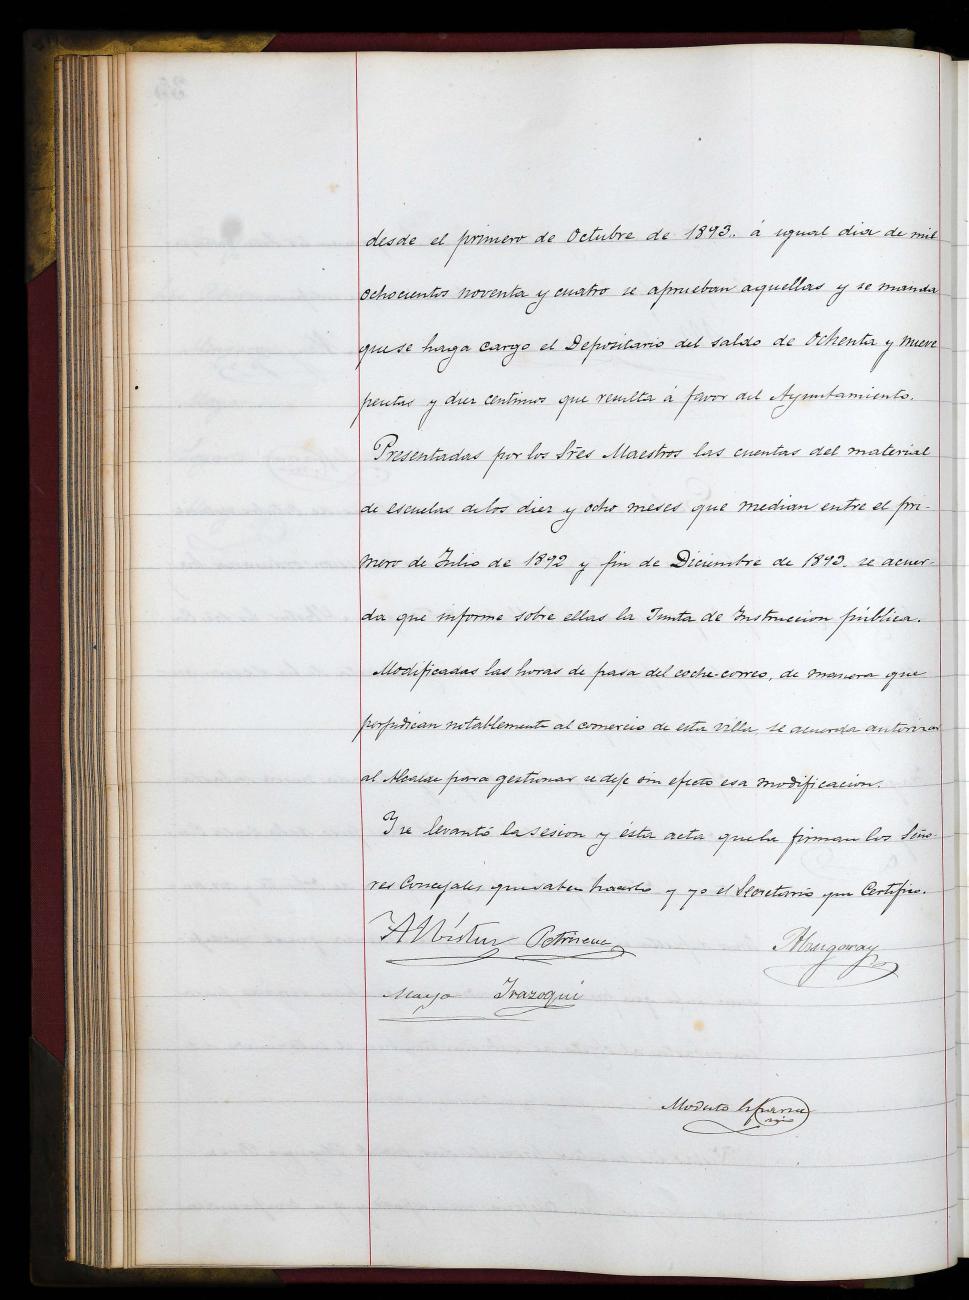 desde el primero de Octubre de 1893. á igual dia de mil
ochocientos noventa y cuatro se aprueban aquellas y se manda
que se haga cargo el Depositario del saldo de Ochenta y nueve
pesetas y diez centimos que resulta á favor del Ayuntamiento.
Presentadas por los Sres Maestros las cuentas del material
de escuelas de los diez y ocho meses que median entre el pri-
mero de Julio de 1892 y fin de Diciembre de 1893. se acuer-
da que informe sobre ellas la Junta de Instruccion pública.
Modificadas las horas de pasa del coche-correo, de manera que
perjudican notablemente al comercio de esta villa, se acuerda autorizar
al Alcalde para gestionar se deje sin efecto esa modificacion.
Y se levantó la sesion y ésta acta que la firman los Seño-
res Concejales que saben hacerlo y yo el Secretario que Certifico.
Albistur Petrirena
Maya Irazoqui
Modesto Esparza